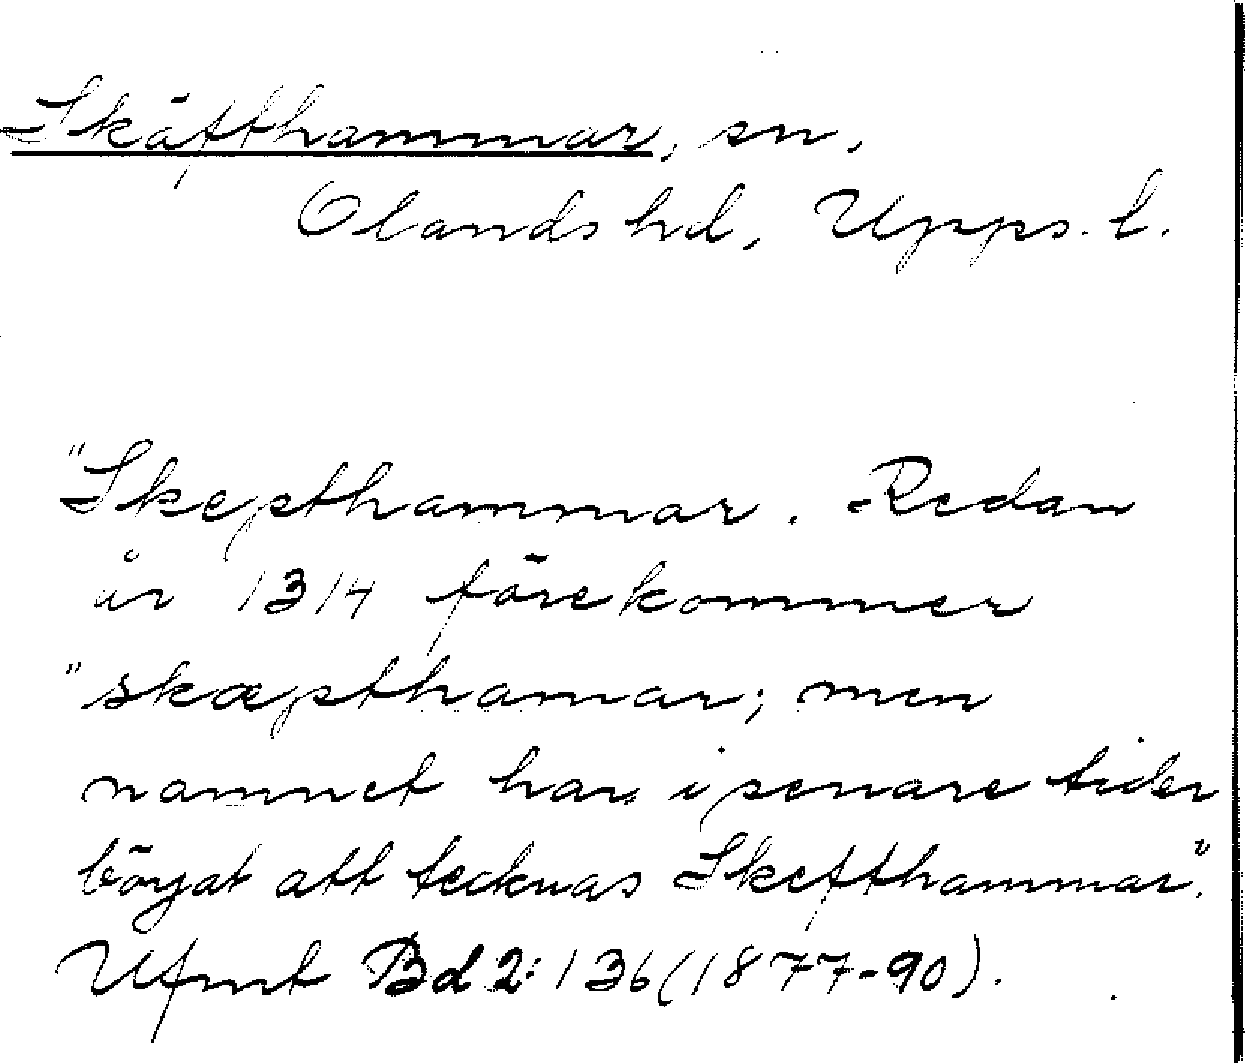 Skäfthammar, sn,
Olands hd, Upps. l.
"Skepthammar. Redan
år 1314 förekommer
"skæpthamar; men
namnet har i senare tider
börjat att tecknas Skefthammar".
Ufmt Bd 2:136 (1877-90).